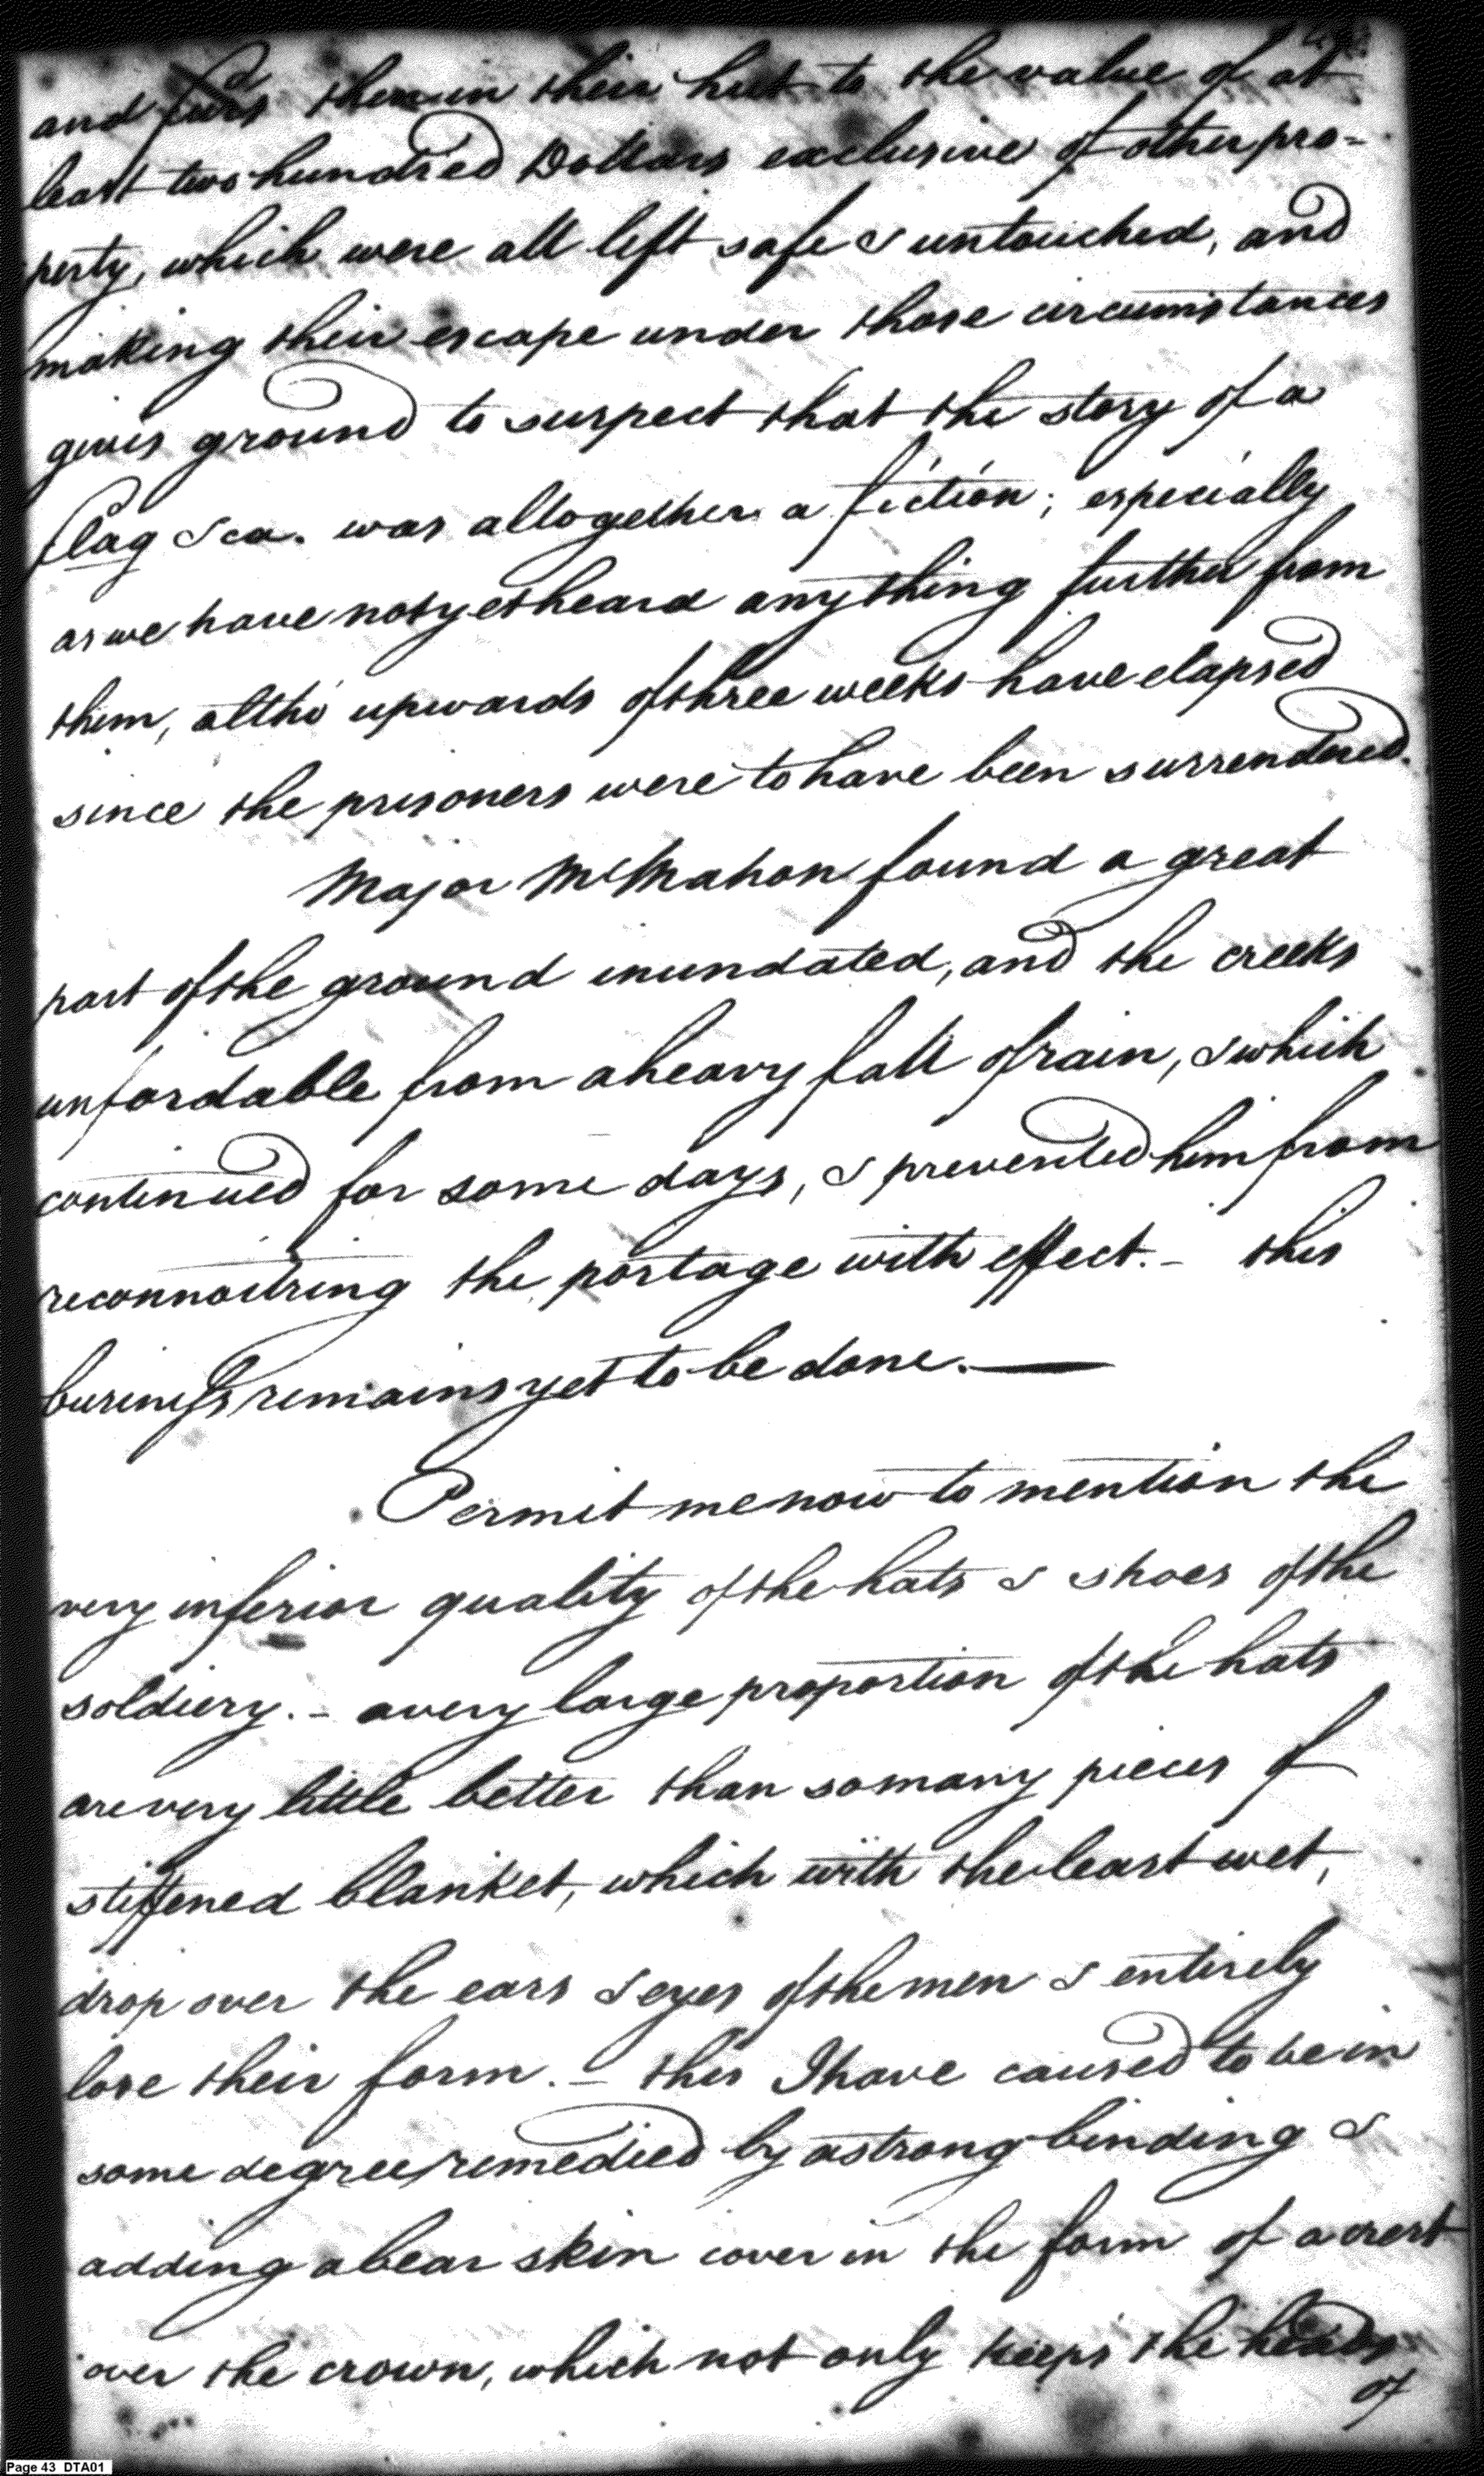 and furs then in their hut to the value of at
least two hundred Dollars exclusive of other pro-
perty, which were all left safe & untouched, and
making their escape under those circumstances
gives ground to suspect that the story of a
flag &ca. was altogether a fiction; especially
as we have not yet heard any thing further from
them, altho' upwards of three weeks have elapsed
since the prisoners were to have been surrendered.
Major McMahon found a great
part of the ground inundated, and the creeks
unfordable from a heavy fall of rain, & which
continued for some days, & prevented him from
reconnoitring the portage with effect. - this
business remains yet to be done. —
Permit me now to mention the
very inferior quality of the hats & shoes of the
soldiery. - a very large proportion of the hats
are very little better than so many pieces of
stiffened blanket, which with the least wet,
drop over the ears & eyes of the men & entirely
lose their form. - this I have caused to be in
some degree remedied by a strong binding &
adding a bear skin cover in the form of a crest
over the crown, which not only keeps the heads
of
Page 43 DTA01